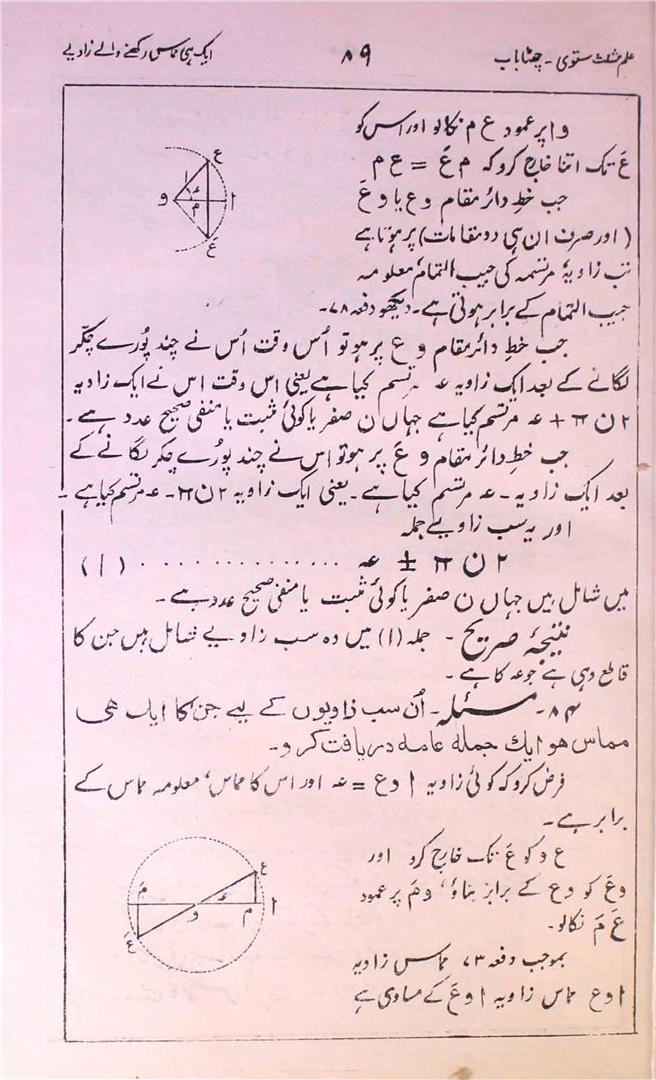 علم مثلث مستوی - چھٹا باب ۸۹ ایک ہی مماس رکھنے والے زاویے
و ا پر عمود ع م نکالو اور اس کو
عَ تک اتنا خارج کرو کہ م عَ = ع م
جب خطِ دائر مقام و ع یا و عَ
(اور صرف ان ہی دو مقامات) پر ہوتا ہے
تب زاویۂ مرتسمہ کی جیب التمام معلومہ
جیب التمام کے برابر ہوتی ہے۔ دیکھو دفعہ ۷۸۔
جب خطِ دائر مقام و ع پر ہو تو اُس وقت اُس نے چند پُورے چکر
لگانے کے بعد ایک زاویہ عہ مرتسم کیا ہے یعنی اس وقت اس نے ایک زاویہ
۲ ن π + عہ مرتسم کیا ہے جہاں ن صفر یا کوئی مثبت یا منفی صحیح عدد ہے۔
جب خطِ دائر مقام و عَ پر ہو تو اس نے چند پُورے چکر لگانے کے
بعد ایک زاویہ - عہ مرتسم کیا ہے۔ یعنی ایک زاویہ ۲ ن π - عہ مرتسم کیا ہے۔
اور یہ سب زاویے جملہ
۲ ن π ± عہ ............... (۱)
میں شامل ہیں جہاں ن صفر یا کوئی مثبت یا منفی صحیح عدد ہے۔
نتیجۂ صریح - جملہ (۱) میں وہ سب زاویے شامل ہیں جن کا
قاطع وہی ہے جو عہ کا ہے۔
۸۴۔ مسئلہ۔ اُن سب زاویوں کے لیے جن کا ایک ہی
مماس ہو ایک جملہ عامہ دریافت کرو۔
فرض کرو کہ کوئی زاویہ ا و ع = عہ اور اس کا مماس، معلومہ مماس کے
برابر ہے۔
ع و کو عَ تک خارج کرو اور
و عَ کو و ع کے برابر بناؤ، و مَ پر عمود
عَ مَ نکالو۔
بموجب دفعہ ۷۳ مماس زاویہ
ا و ع مماس زاویہ ا و عَ کے مساوی ہے
ع
ا
و
عہ
م
ا
عَ
ع
مَ
و
عہ
م
ا
عَ